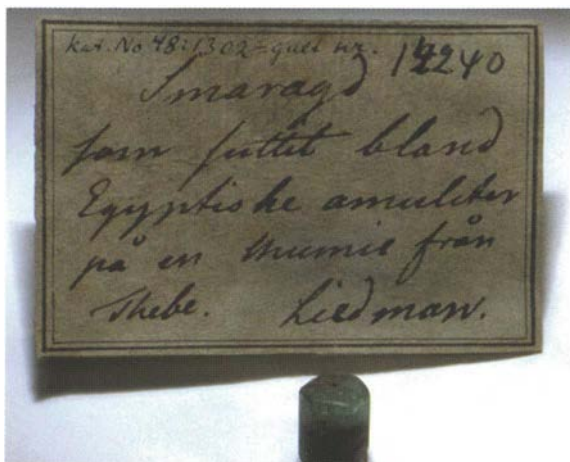 kat. No 48:1302 = gul nr. 12240
Smaragd
som suttit bland
Egyptiske amuleter
på en Mumie från
Thebe. Liedman.